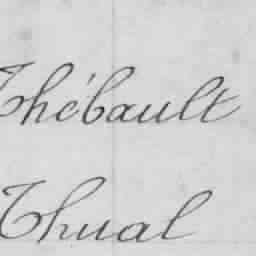 Thébault
Thual